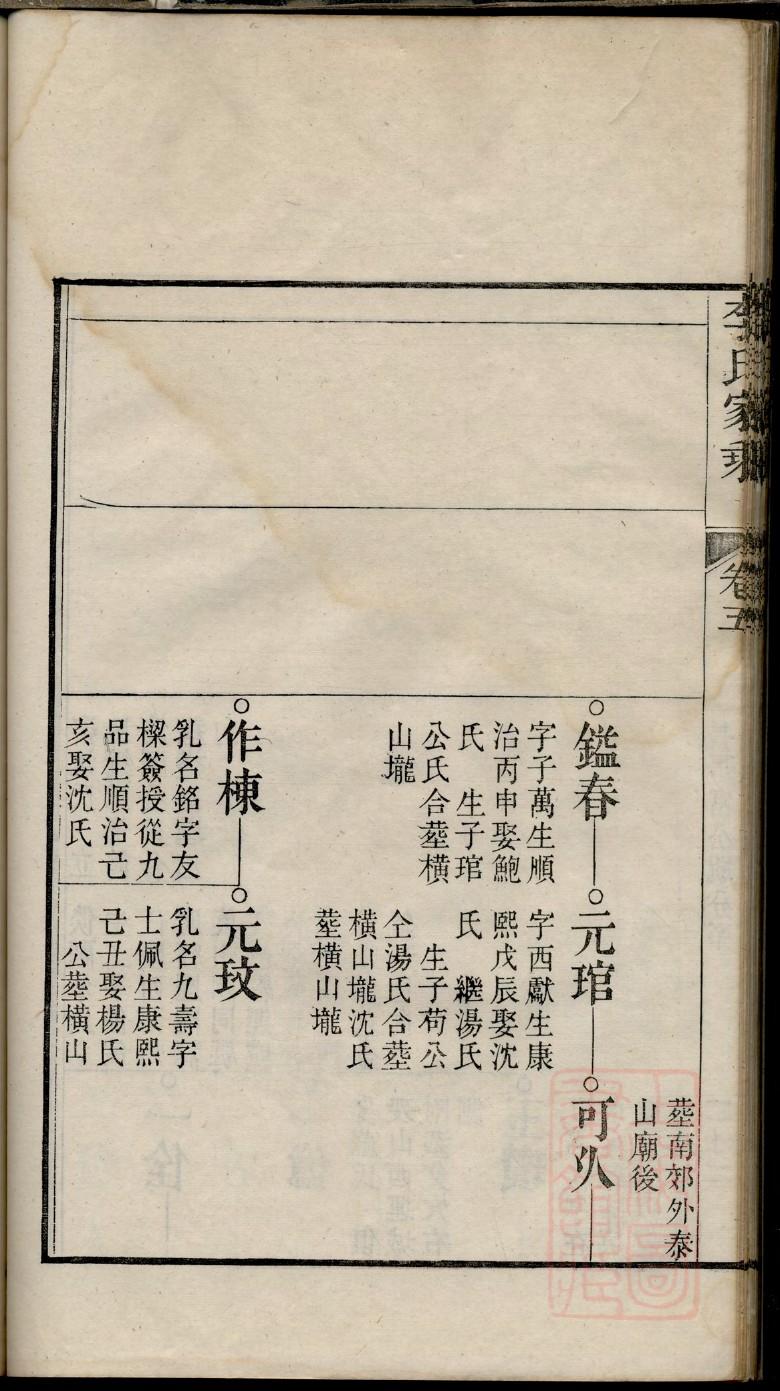 李氏家乘
卷五
塟南郊外泰
山廟後
○鑑春
字子萬生順
治丙申娶鮑
氏 生子琯
公氏合塟橫
山壠
○元琯
字西獻生康
熙戊辰娶沈
氏 繼湯氏
生子苟公
仝湯氏合塟
橫山壠沈氏
塟橫山壠
○可久
○作棟
乳名銘字友
樑簽授從九
品生順治己
亥娶沈氏
○元玟
乳名九壽字
士佩生康熙
己丑娶楊氏
公塟橫山